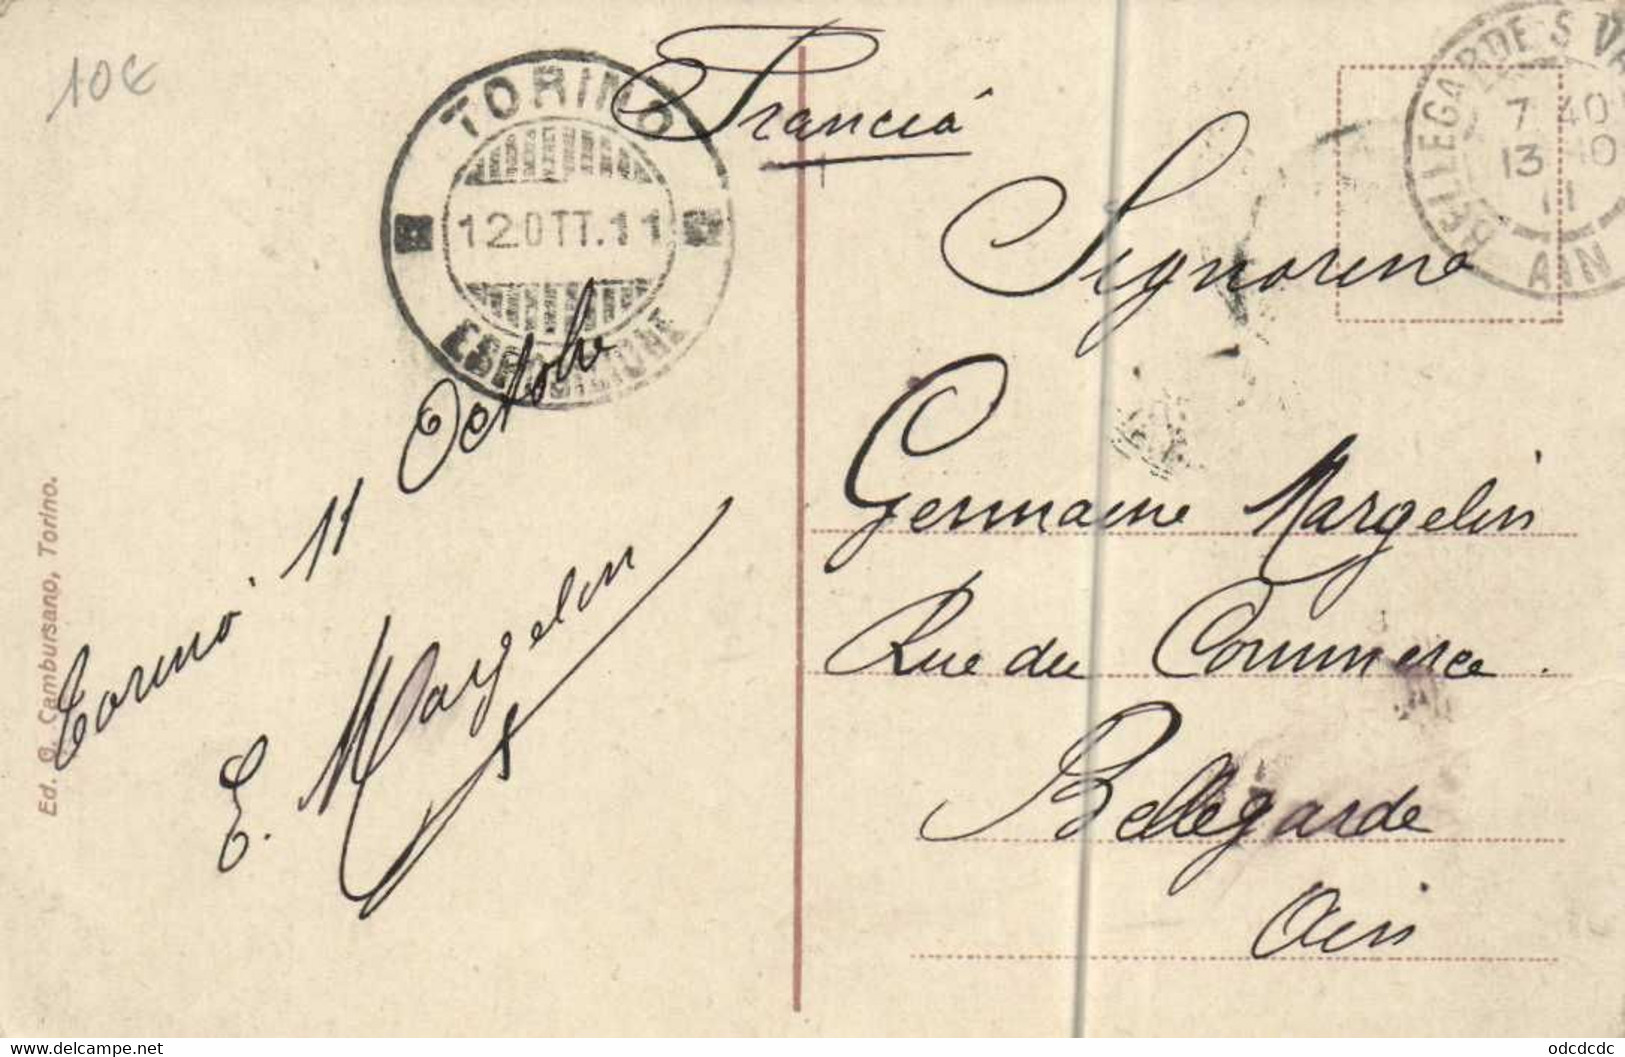 10€
TORINO
12.OTT.11
ESPOSIZIONE
Francia
BELLEGARDE S VA
7 40
13 10
11
AIN
Signorina
Germaine Margelin
Rue du Commerce.
Bellegarde
Ain
Torino 11 Octobre
E. Margelin
Ed. G. Cambursano, Torino.
www.delcampe.net
odcdcdc